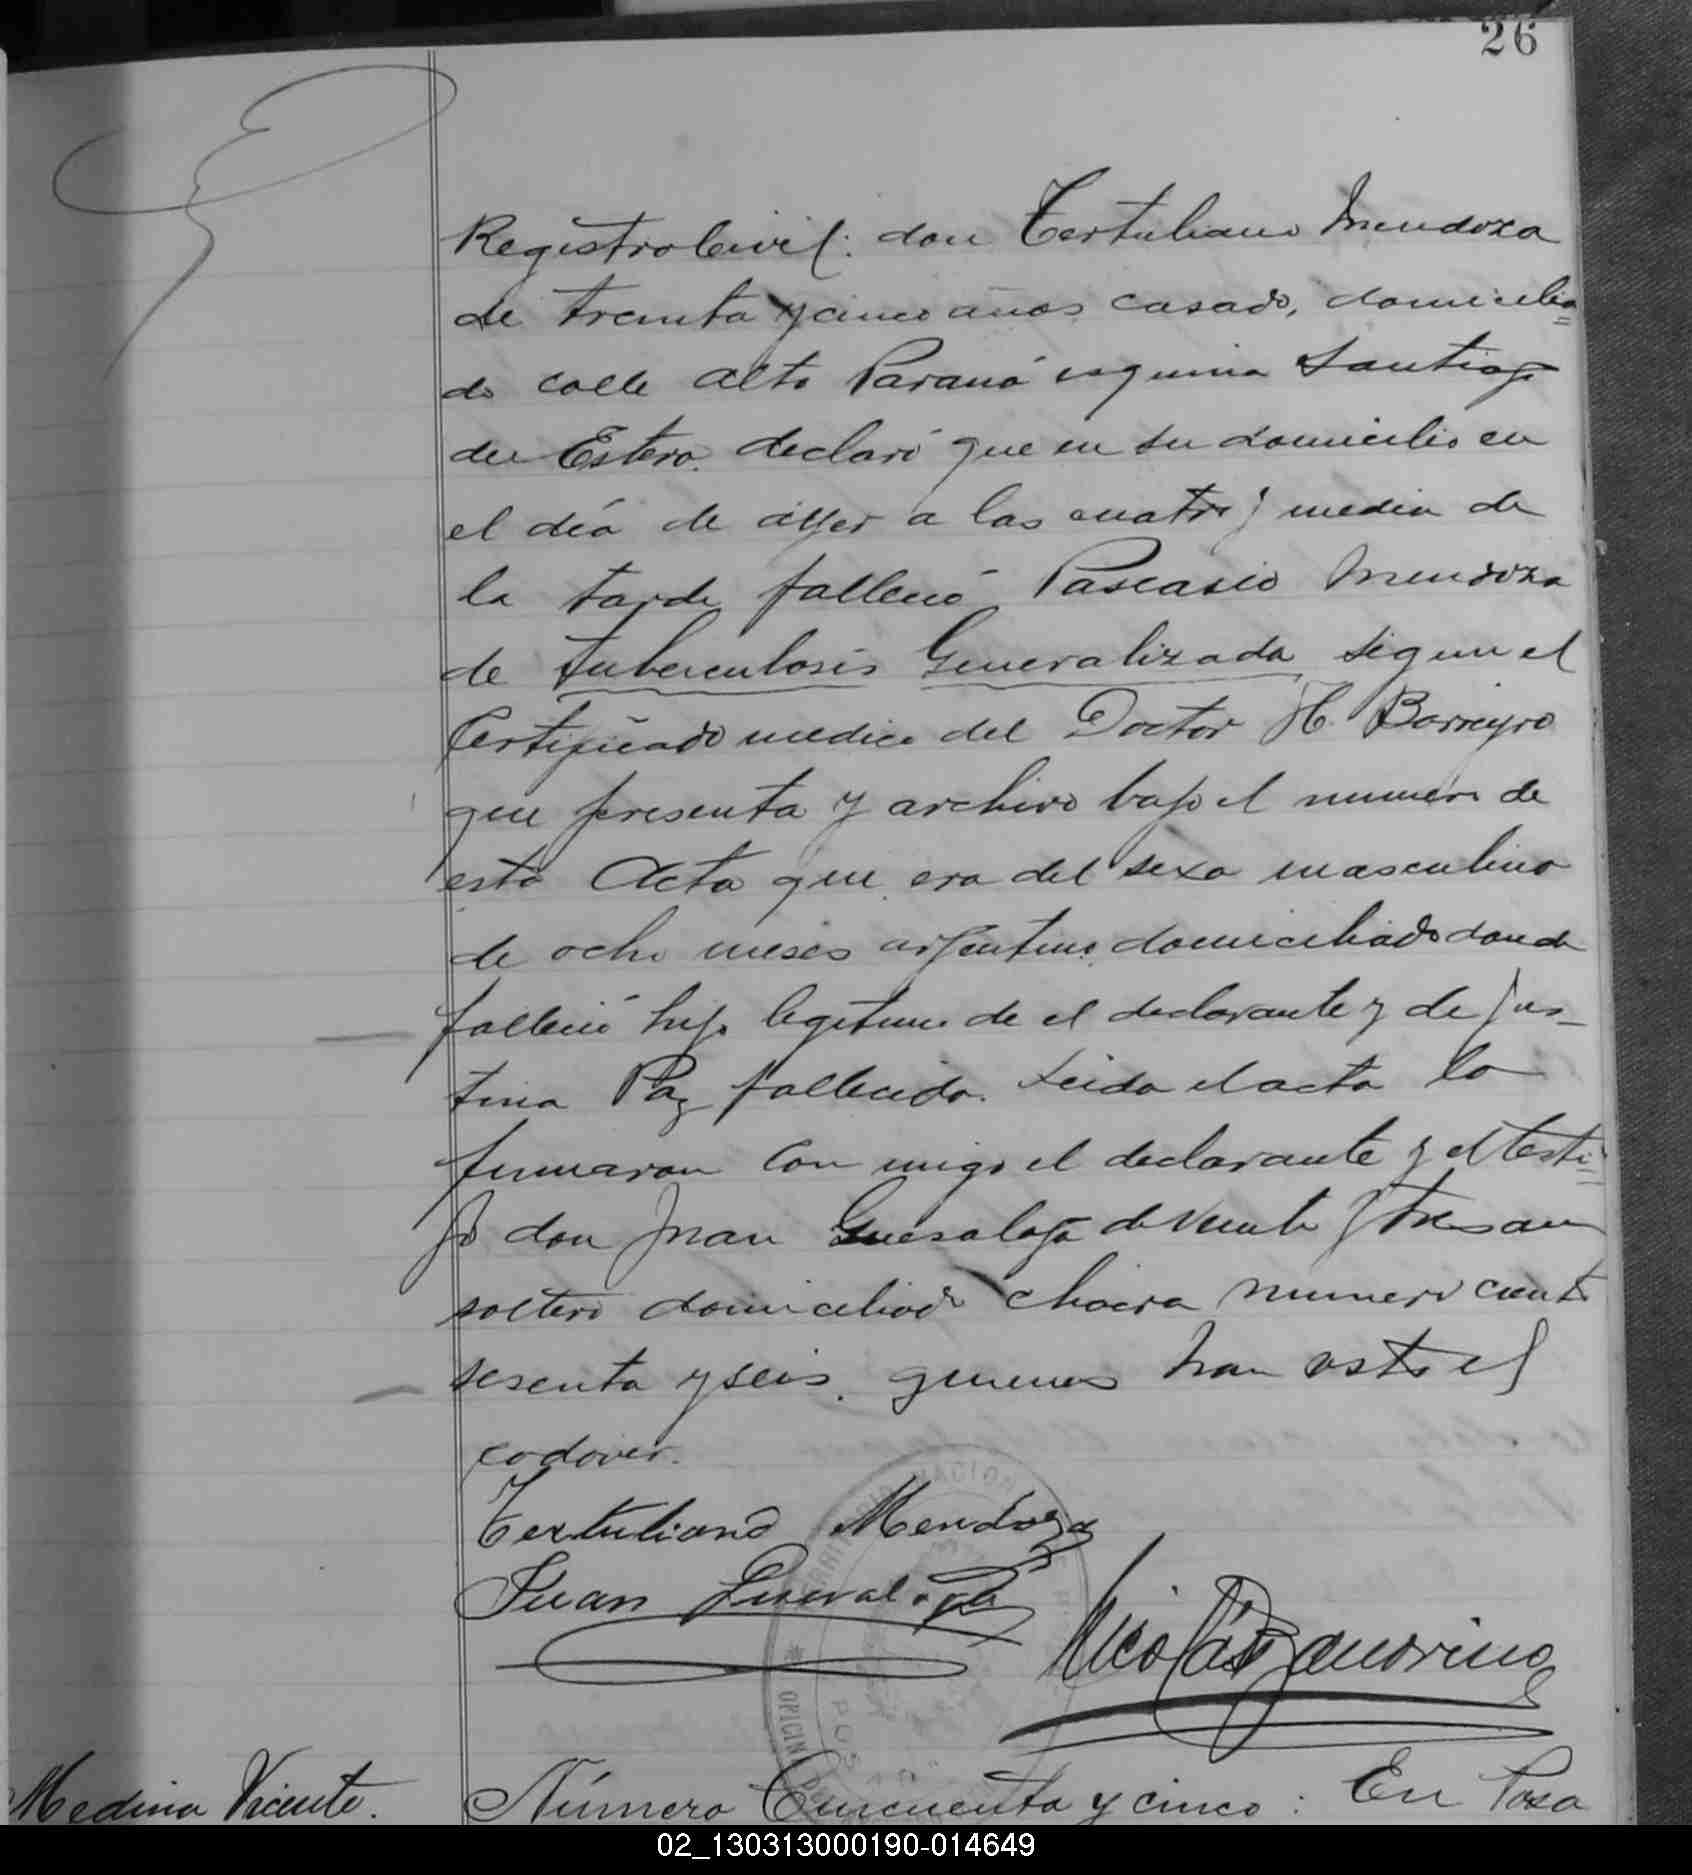 26
Registro Civil: don Tertuliano Mendoza
de treinta y cinco años casado, domicilia
do calle Alto Paraná esquina Santiago
del Estero. declaró que en su domicilio en
el día de ayer a las cuatro y media de
la tarde falleció Pascasio Mendoza
de tuberculosis Generalizada segun el
Certificado medico del Doctor H. Barreyro
que presenta y archivo bajo el numero de
esta Acta que era del sexo masculino
de ocho meses argentino, domiciliado donde
falleció hijo legitimo de el declarante y de Jus-
tina Paz fallecida. Leida el acta la
firmaron con migo el declarante y el testi-
go don Juan de veinte y tres años
soltero domiciliado chacra numero ciento
sesenta y seis, quienes han visto el
cadaver.
Tertuliano Mendoza
Juan
Nicolás
Medina Vicente.
Número Cincuenta y cinco: En Posa
02_130313000190-014649